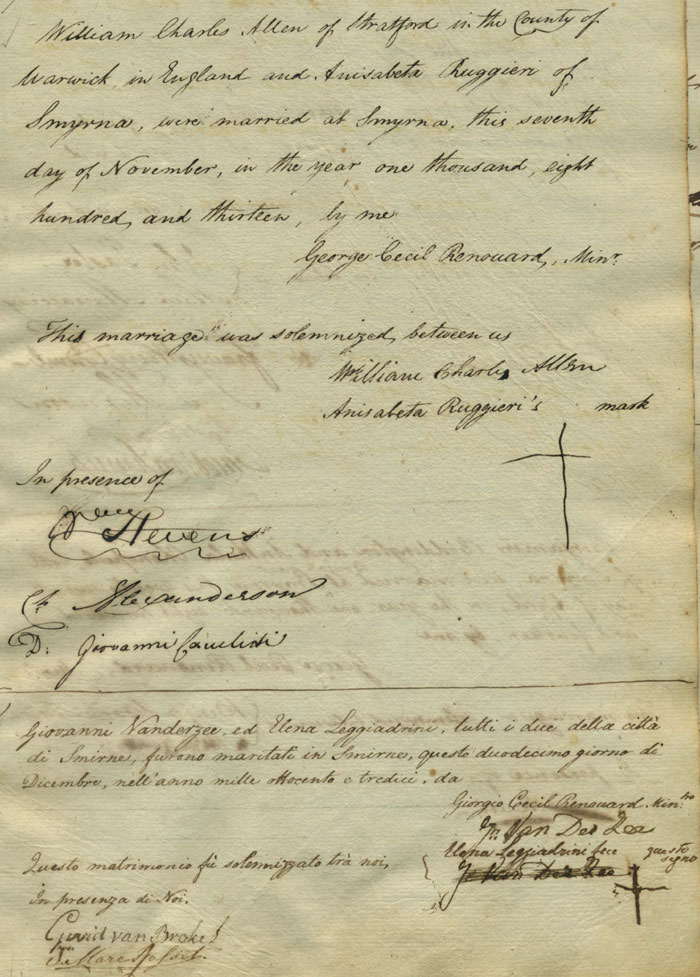 William Charles Allen of Stratford in the County of
Warwick in England and Anisabeta Ruggieri of
Smyrna, were married at Smyrna, this seventh
day of November, in the year one thousand, eight
hundred, and thirteen, by me
George Cecil Renouard, Minr.
This marriage was solemnized between us
William Charles Allen
Anisabeta Ruggieri's mark
In presence of
Stevens
Alexanderson
D: Giovanni
Giovanni Vanderzee, ed Elena Leggiadrini, tutti i due della città
di Smirne, furono maritati in Smirne, questo duodecimo giorno di
Dicembre, nell'anno mille ottocento e tredici, da
Giorgio Cecil Renouard Mintro
Jn Van Der Zee
Questo matrimonio fù solemnizzato trà noi,
Elena Leggiadrini fece questo
segno
Jn Van Der Zee
In presenza di Noi.
Gerrit van Brakel